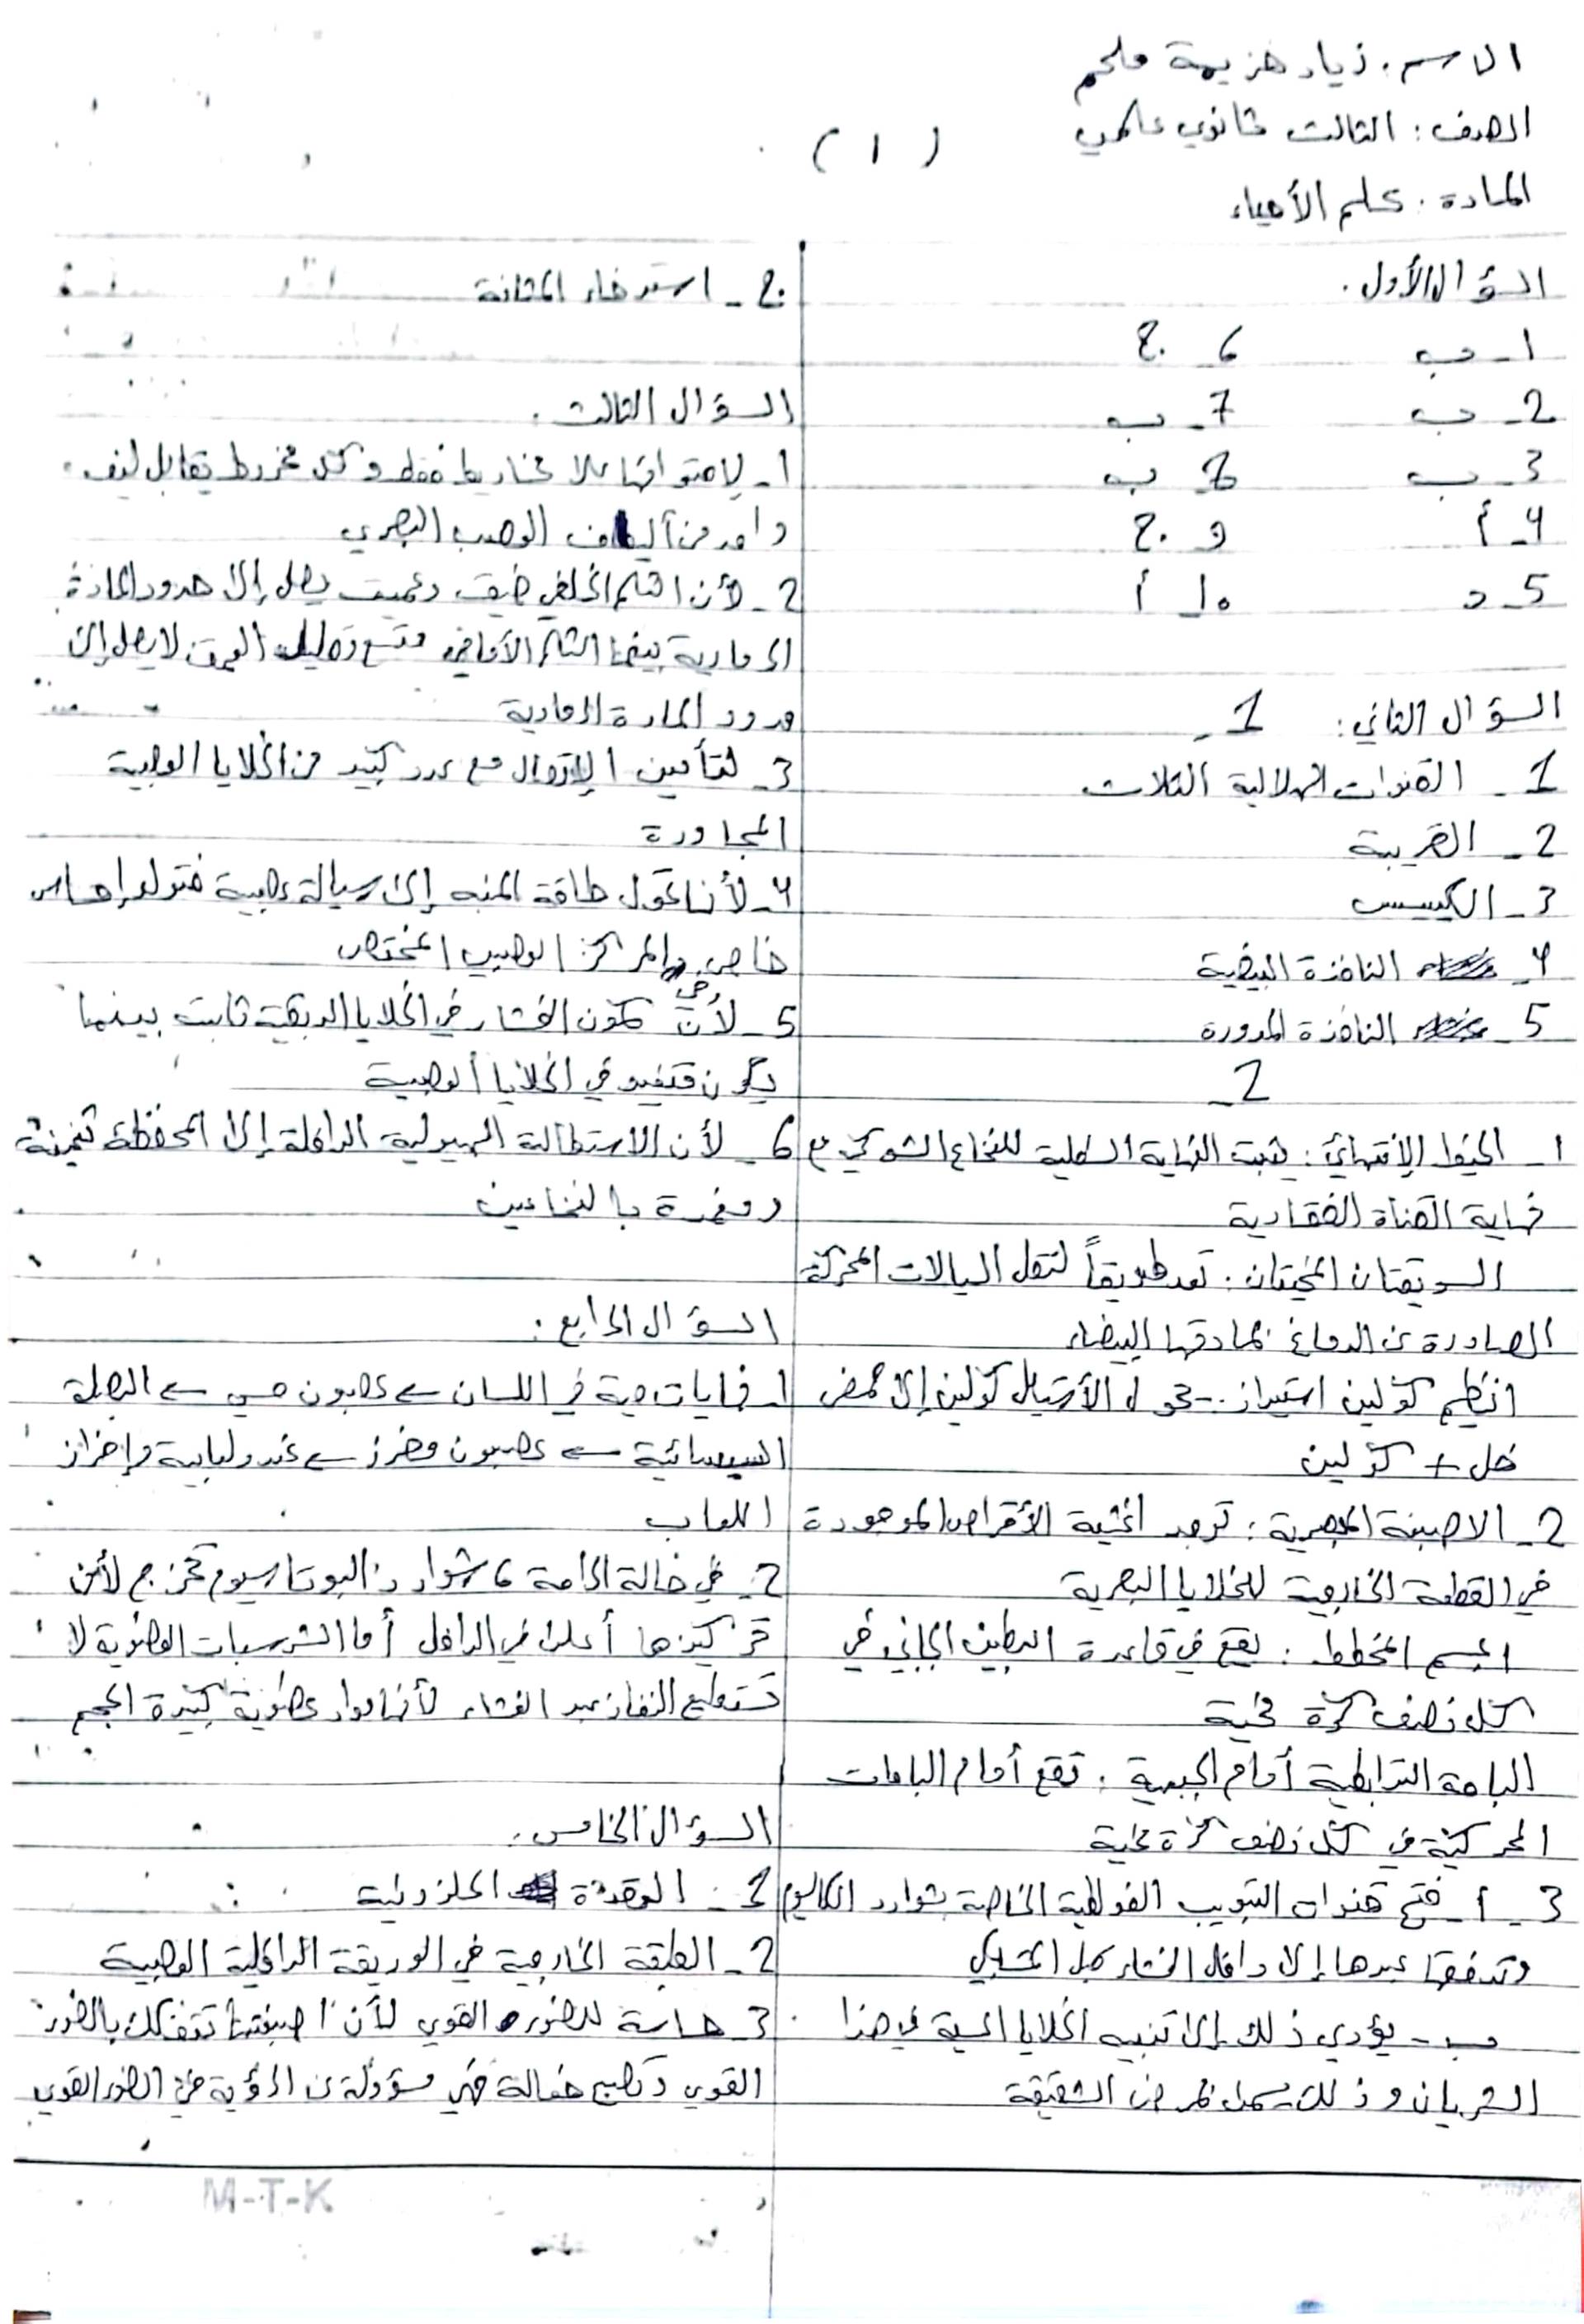 الاسم: زياد هزيمة ملحم
الصف: الثالث ثانوي علمي
(١)
المادة: علم الأحياء
السؤال الأول:
1- ب
6- ج
2- ب
7- ب
3- ب
8- ب
4- أ
9- ج
5- د
10- أ
السؤال الثاني: 1-
1- القنوات الهلالية الثلاث
2- القريبة
3- الكييس
4- النافذة البيضية
5- النافذة المدورة
2-
1- الخيط الانتهائي: يثبت النهاية السفلية للنخاع الشوكي مع
نهاية القناة الفقارية
السويقتان المخيتان: تعد طريقاً لنقل السيالات المحركة
الصادرة عن الدماغ بمادتها البيضاء
انظيم كولين استيراز: تحول الأستيل كولين إلى حمض
خل + كولين
2- الاصبغة البصرية: توجد اغشية الأقراص الموجودة
في القطعة الخارجية للخلايا البصرية
الجسم المخطط: يقع في قاعدة البطين الجانبي في
كل نصف كرة مخية
الباحة الترابطية أمام الجبهية: تقع أمام الباحات
المحركية في كل نصف كرة مخية
3- أ- فتح قنوات التبويب الفولطية الخاصة بشوارد الكالسيوم
وتدفقها عبرها إلى داخل الغشاء قبل المشبكي
ب- يؤدي ذلك إلى تنبيه الخلايا الحسية في هذا
الشريان وذلك يسمى بمرض الشقيقة
ج- استرخاء المثانة
السؤال الثالث:
1- لاحتوائها على مخاريط فقط وكل مخروط يقابل ليف
واحد من ألياف العصب البصري
2- لأن الثلم الخلفي ضيق وعميق يصل إلى حدود المادة
الرمادية بينما الثلم الأمامي متسع وقليل العمق لا يصل إلى
حدود المادة الرمادية
3- لتأمين الاتصال مع عدد كبير من الخلايا العصبية
المجاورة
4- لأنها تحول طاقة المنبه إلى سيالة عصبية فتولد إحساس
خاص في المركز العصبي المختص
5- لأن كمون الغشاء في الخلايا الدبقية ثابت بينما
يكون متغير في الخلايا العصبية
6- لأن الاستطالة الهيولية الداخلة إلى المحفظة ثخينة
ومغمدة بالنخاعين
السؤال الرابع:
1- نهايات حية في اللسان ← عصبون حسي ← البصلة
السيسائية ← عصبون مفرز ← غدد لعابية وإفراز
اللعاب
2- في حالة الراحة، شوارد البوتاسيوم تخرج لأن
تركيزها أعلى في الداخل أما الشرسبات العضوية لا
تستطيع النفاذ عبر الغشاء لأنها مواد عضوية كبيرة الحجم
السؤال الخامس:
1- العقدة الحلزونية
2- الطبقة الخارجية في الوريقة الداخلية العصبية
3- حساسة للضوء القوي لأن اصبغتها تتفكك بالضوء
القوي وتصبح فعالة فهي مسؤولة عن الرؤية في الضوء القوي
M-T-K